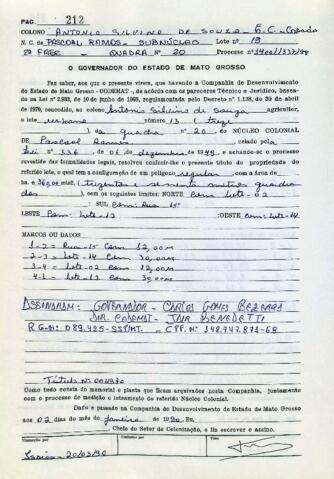 PAG. 212
COLONO ANTONIO SILVINO DE SOUZA - E.C. - Casado
N. C. de PASCOAL RAMOS - SUBNÚCLEO Lote nº 13
2ª FASE - QUADRA Nº 20 Processo nº
O GOVERNADOR DO ESTADO DE MATO GROSSO
Faz saber, aos que o presente virem, que havendo a Companhia de Desenvolvimento
do Estado de Mato Grosso - CODEMAT -, de acórdo com os pareceres Técnico e Jurídico, basea-
da na Lei nº 2.933, de 10 de junho de 1969, regulamentada pelo Decreto nº 1.138, de 30 de abril
de 1970, concedido, ao colono Antonio Silvino de Souza agricultor,
o lote urbano número 13 ( treze
) da quadra nº 20. do NÚCLEO COLONIAL
de Pascoal Ramos criado pela
Lei nº 336, de 06 de dezembro de 1949, e achando-se o processo
revestido das formalidades legais, resolveu conferir-lhe o presente título de propriedade do
referido lote, o qual tem a configuração de um polígono regular, com a área de
ha 360,00 mts², (trezentos e sessenta metros quadra
dos ), com os seguintes limites: NORTE Com Lote-02
SUL Com Rua-15
LESTE Com: Lote-12 :OESTE Com: Lote-14
MARCOS OU DADOS
1-2 = Rua-15 Com 12,00m
2-3 = Lote-14 Com 30,00m
3-4 = Lote-02 Com 12,00m
4-1 = Lote-12 Com 30,00m
ASSINARAM: GOVERNADOR - CARLOS GOMES BEZERRA
DIR. CODEMAT - JAIR BENEDETTI
R G. Nº 089.425-SSP/MT. - CPF. Nº 148.747.871-68
Título nº
Como tudo consta do memorial e planta que ficam arquivados nesta Companhia, juntamente
com o processo de medição e loteamento do referido Núcleo Colonial.
Dado e passado na Companhia de Desenvolvimento do Estado de Mato Grosso
aos 02 dias do mês de janeiro de 1990. Eu,
, Chefe do Setor de Colonização, o fiz escrever e assino.
Transcrito por
Conferido por
Visto
20/03/90